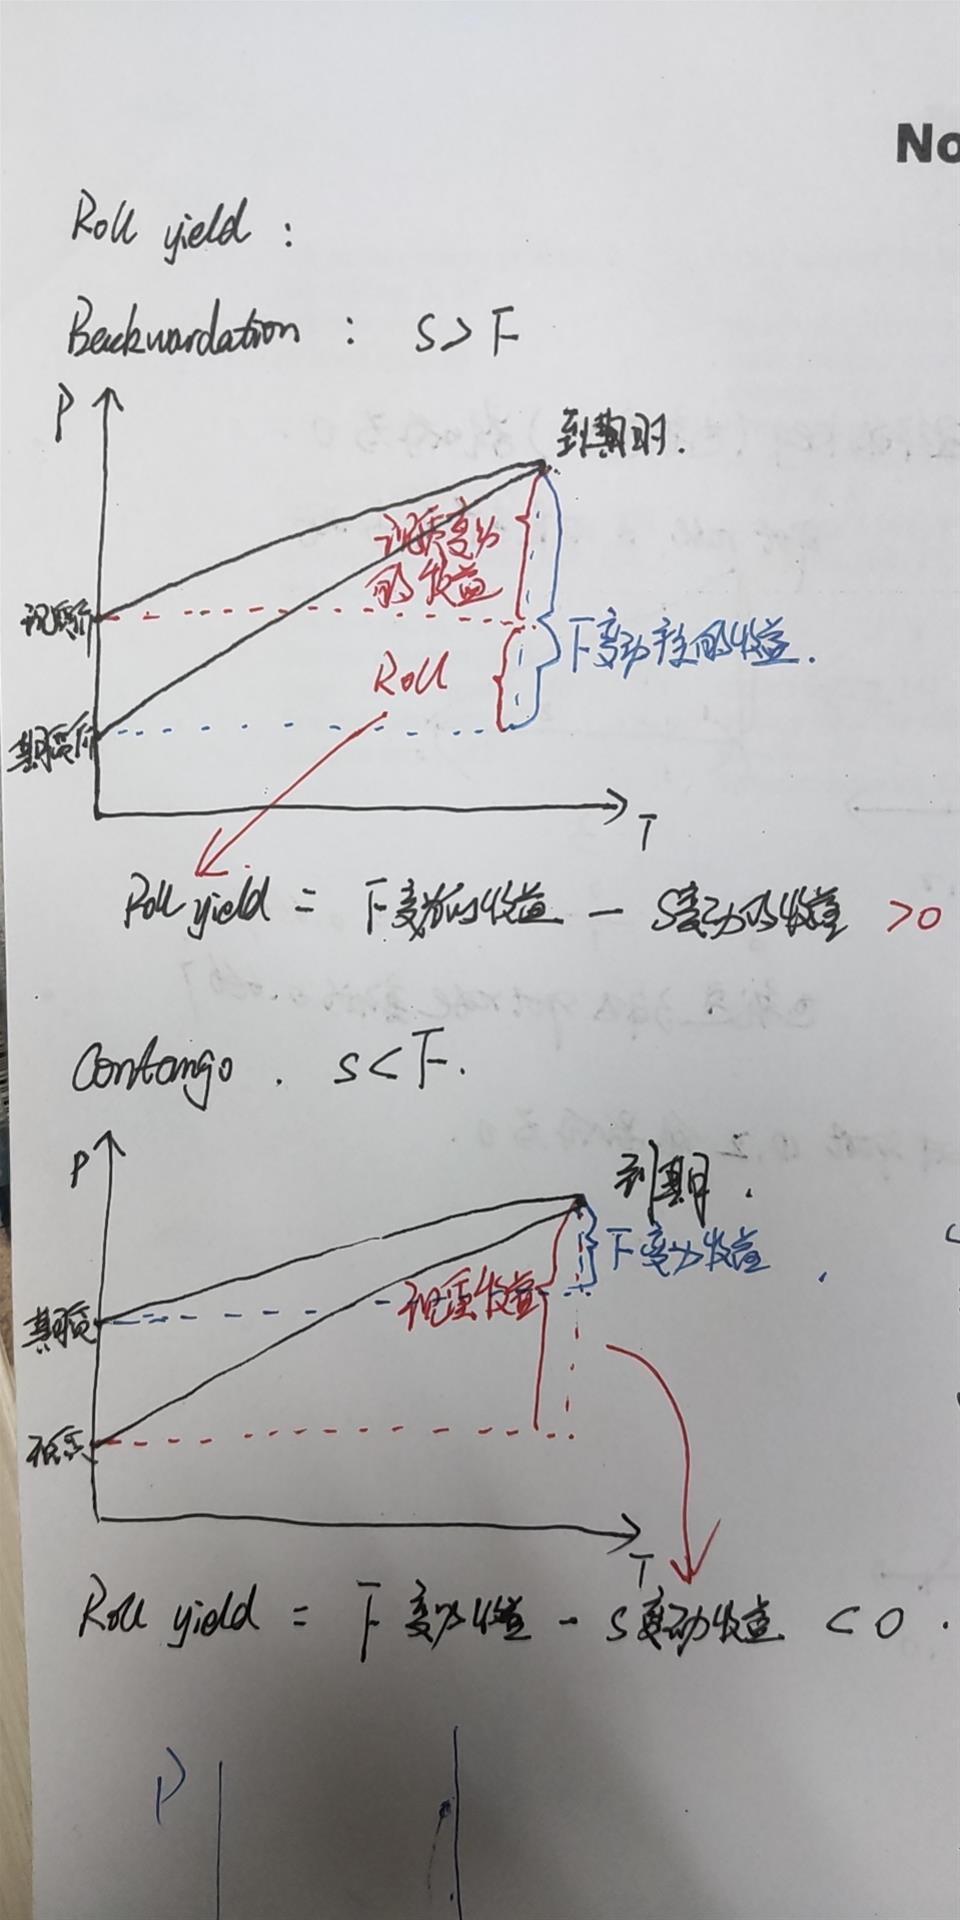 No
Roll yield :
Backwardation : S > F
P
到期时.
现货变动
的收益
现货价
F变动产生的收益.
Roll
期货价
T
Roll yield = F变动的收益 - S变动的收益 >0
Contango . S < F.
P
到期时 .
F变动收益
期货
现货收益
现货
T
Roll yield = F变动收益 - S变动收益 < 0 .
P